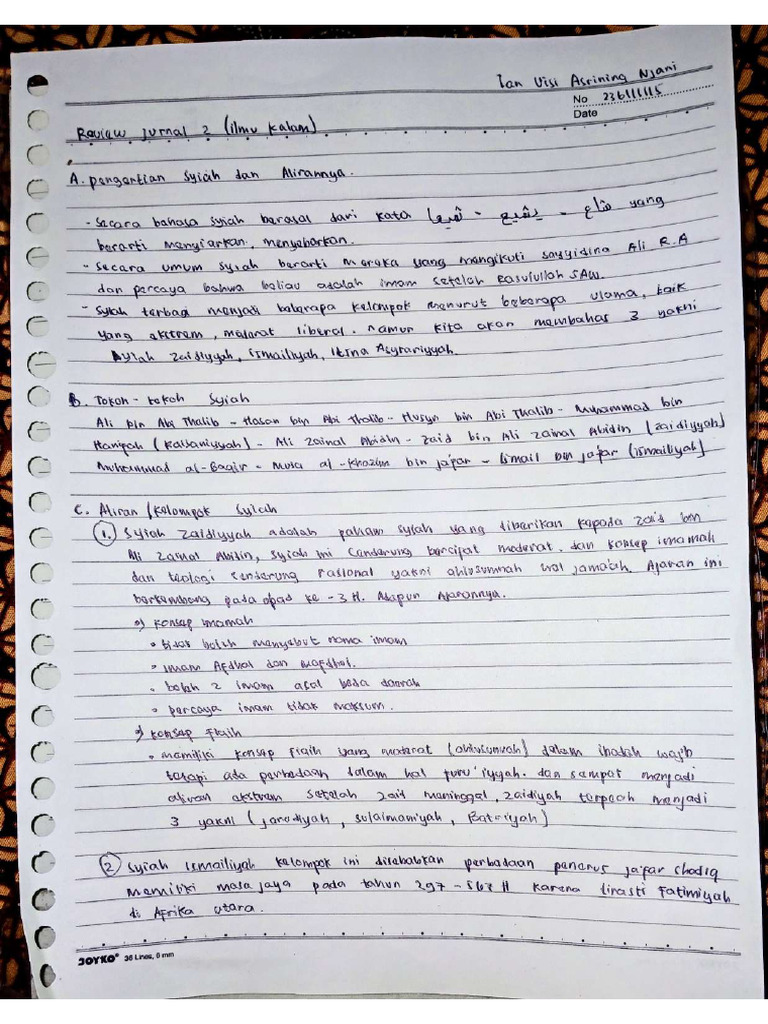 Ian Visi Asrining Njani
No 236111115
Date
Review Jurnal 2 (ilmu kalam)
A. pengertian Syiah dan Alirannya.
- Secara bahasa syiah berasal dari kata شاع - يشيع - شيعا yang
berarti menyiarkan, menyebarkan.
- Secara umum syiah berarti mereka yang mengikuti sayyidina Ali R.A
dan percaya bahwa beliau adalah imam setelah Rasulullah SAW.
- Syiah terbagi menjadi beberapa kelompok menurut beberapa ulama, baik
yang ekstrem, moderat liberal. namun kita akan membahas 3 yakni
Syiah Zaidiyyah, ismailiyah, itsna Asyrariyyah.
B. Tokoh-tokoh Syiah
Ali bin Abi Thalib - Hasan bin Abi Thalib - Husyn bin Abi Thalib - Muhammad bin
Hanifah (Kaisaniyyah) - Ali Zainal Abidin - Zaid bin Ali Zainal Abidin (zaidiyyah)
Muhammad al-Baqir - Musa al-khazim bin ja'far - Ismail bin ja'far (ismailiyah)
C. Aliran/kelompok Syiah
1. Syiah Zaidiyyah adalah paham syiah yang diberikan kepada Zaid bin
Ali Zainal Abidin, syiah ini cenderung bersifat moderat. dan konsep imamah
dan teologi cenderung rasional yakni ahlusunnah wal jama'ah. Ajaran ini
berkembang pada abad ke-3 H. Adapun Ajarannya.
a) konsep imamah
• tidak boleh menyebut nama imam
• imam Afdhol dan mafdhol.
• boleh 2 imam asal beda daerah
• percaya imam tidak maksum.
b) konsep Fiqih
• memiliki konsep fiqih yang moderat (ahlusunnah) dalam ibadah wajib
tetapi ada perbedaan dalam hal furu'iyyah. dan sempat menjadi
aliran ekstrem setelah zaid meninggal, zaidiyah terpecah menjadi
3 yakni (jarodiyah, sulaimaniyah, Batriyah)
2 Syiah ismailiyah kelompok ini disebabkan perbedaan penerus ja'far shodiq
memiliki masa jaya pada tahun 297 - 567 H karena dinasti Fatimiyah
di Afrika utara.
JOYKO® 36 Lines, 8 mm